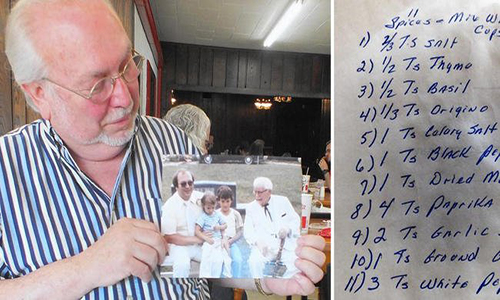 11
Spices - Mix W
Cups
1) 2/3 Ts Salt
2) 1/2 Ts Thyme
3) 1/2 Ts Basil
4) 1/3 Ts Origino
5) 1 Ts Celery Salt
6) 1 Ts Black Pe
7) 1 Ts Dried M
8) 4 Ts Paprika
9) 2 Ts Garlic
10) 1 Ts Ground G
11) 3 Ts White Pep